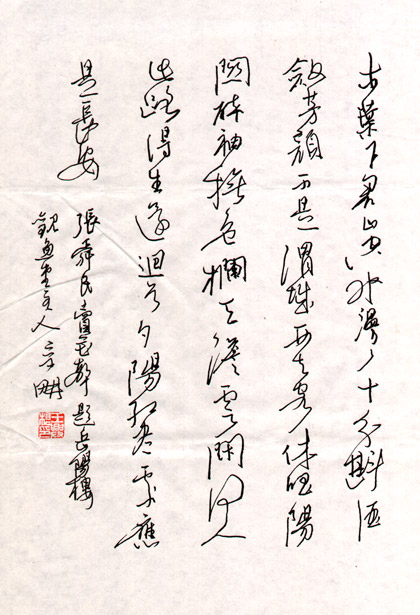 木葉下君山空水漫々十分斟酒
斂芳顏不是渭城西去客休唱陽
關醉袖撫危欄天淡雲閒何人
此路得生還迴首夕陽紅盡處應
是長安
張舜民賣花聲題岳陽樓
觀魚堂主人